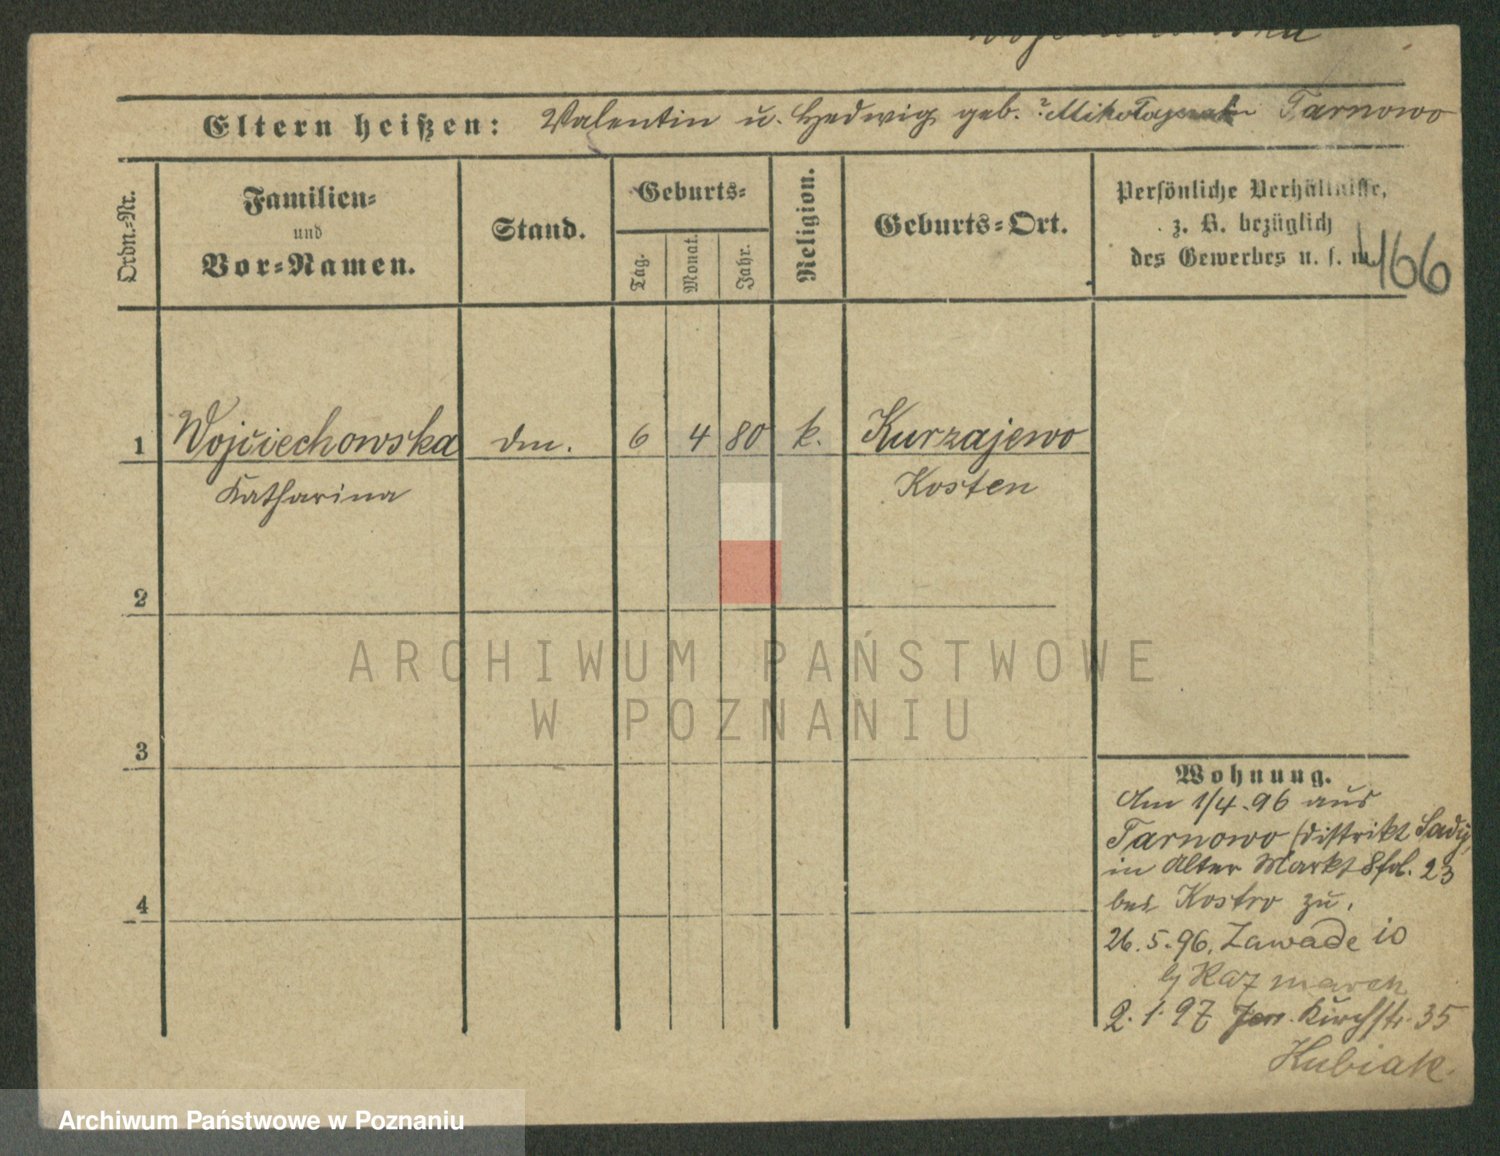 Eltern heißen: Valentin u. Hedwig geb. ? Tarnowo
Ordn.-Nr.
Familien-
und
Vor-Namen.
Stand.
Geburts-
Tag.
Monat.
Jahr.
Religion.
Geburts-Ort.
Persönliche Verhältnisse,
z. B. bezüglich
des Gewerbes u. s. w.
466
1 Wojciechowska dm. 6 4 80 k. Kurzajewo
Katharina Kosten
2
3
4
Wohnung.
Am 1/4.96 aus
Tarnowo (Distrikt Sady)
in Alter Markt 23
bei Kostro zu.
26.5.96. Zawade 10
2.1.97 Kirchstr. 35
Kubiak.
ARCHIWUM PAŃSTWOWE
W POZNANIU
Archiwum Państwowe w Poznaniu